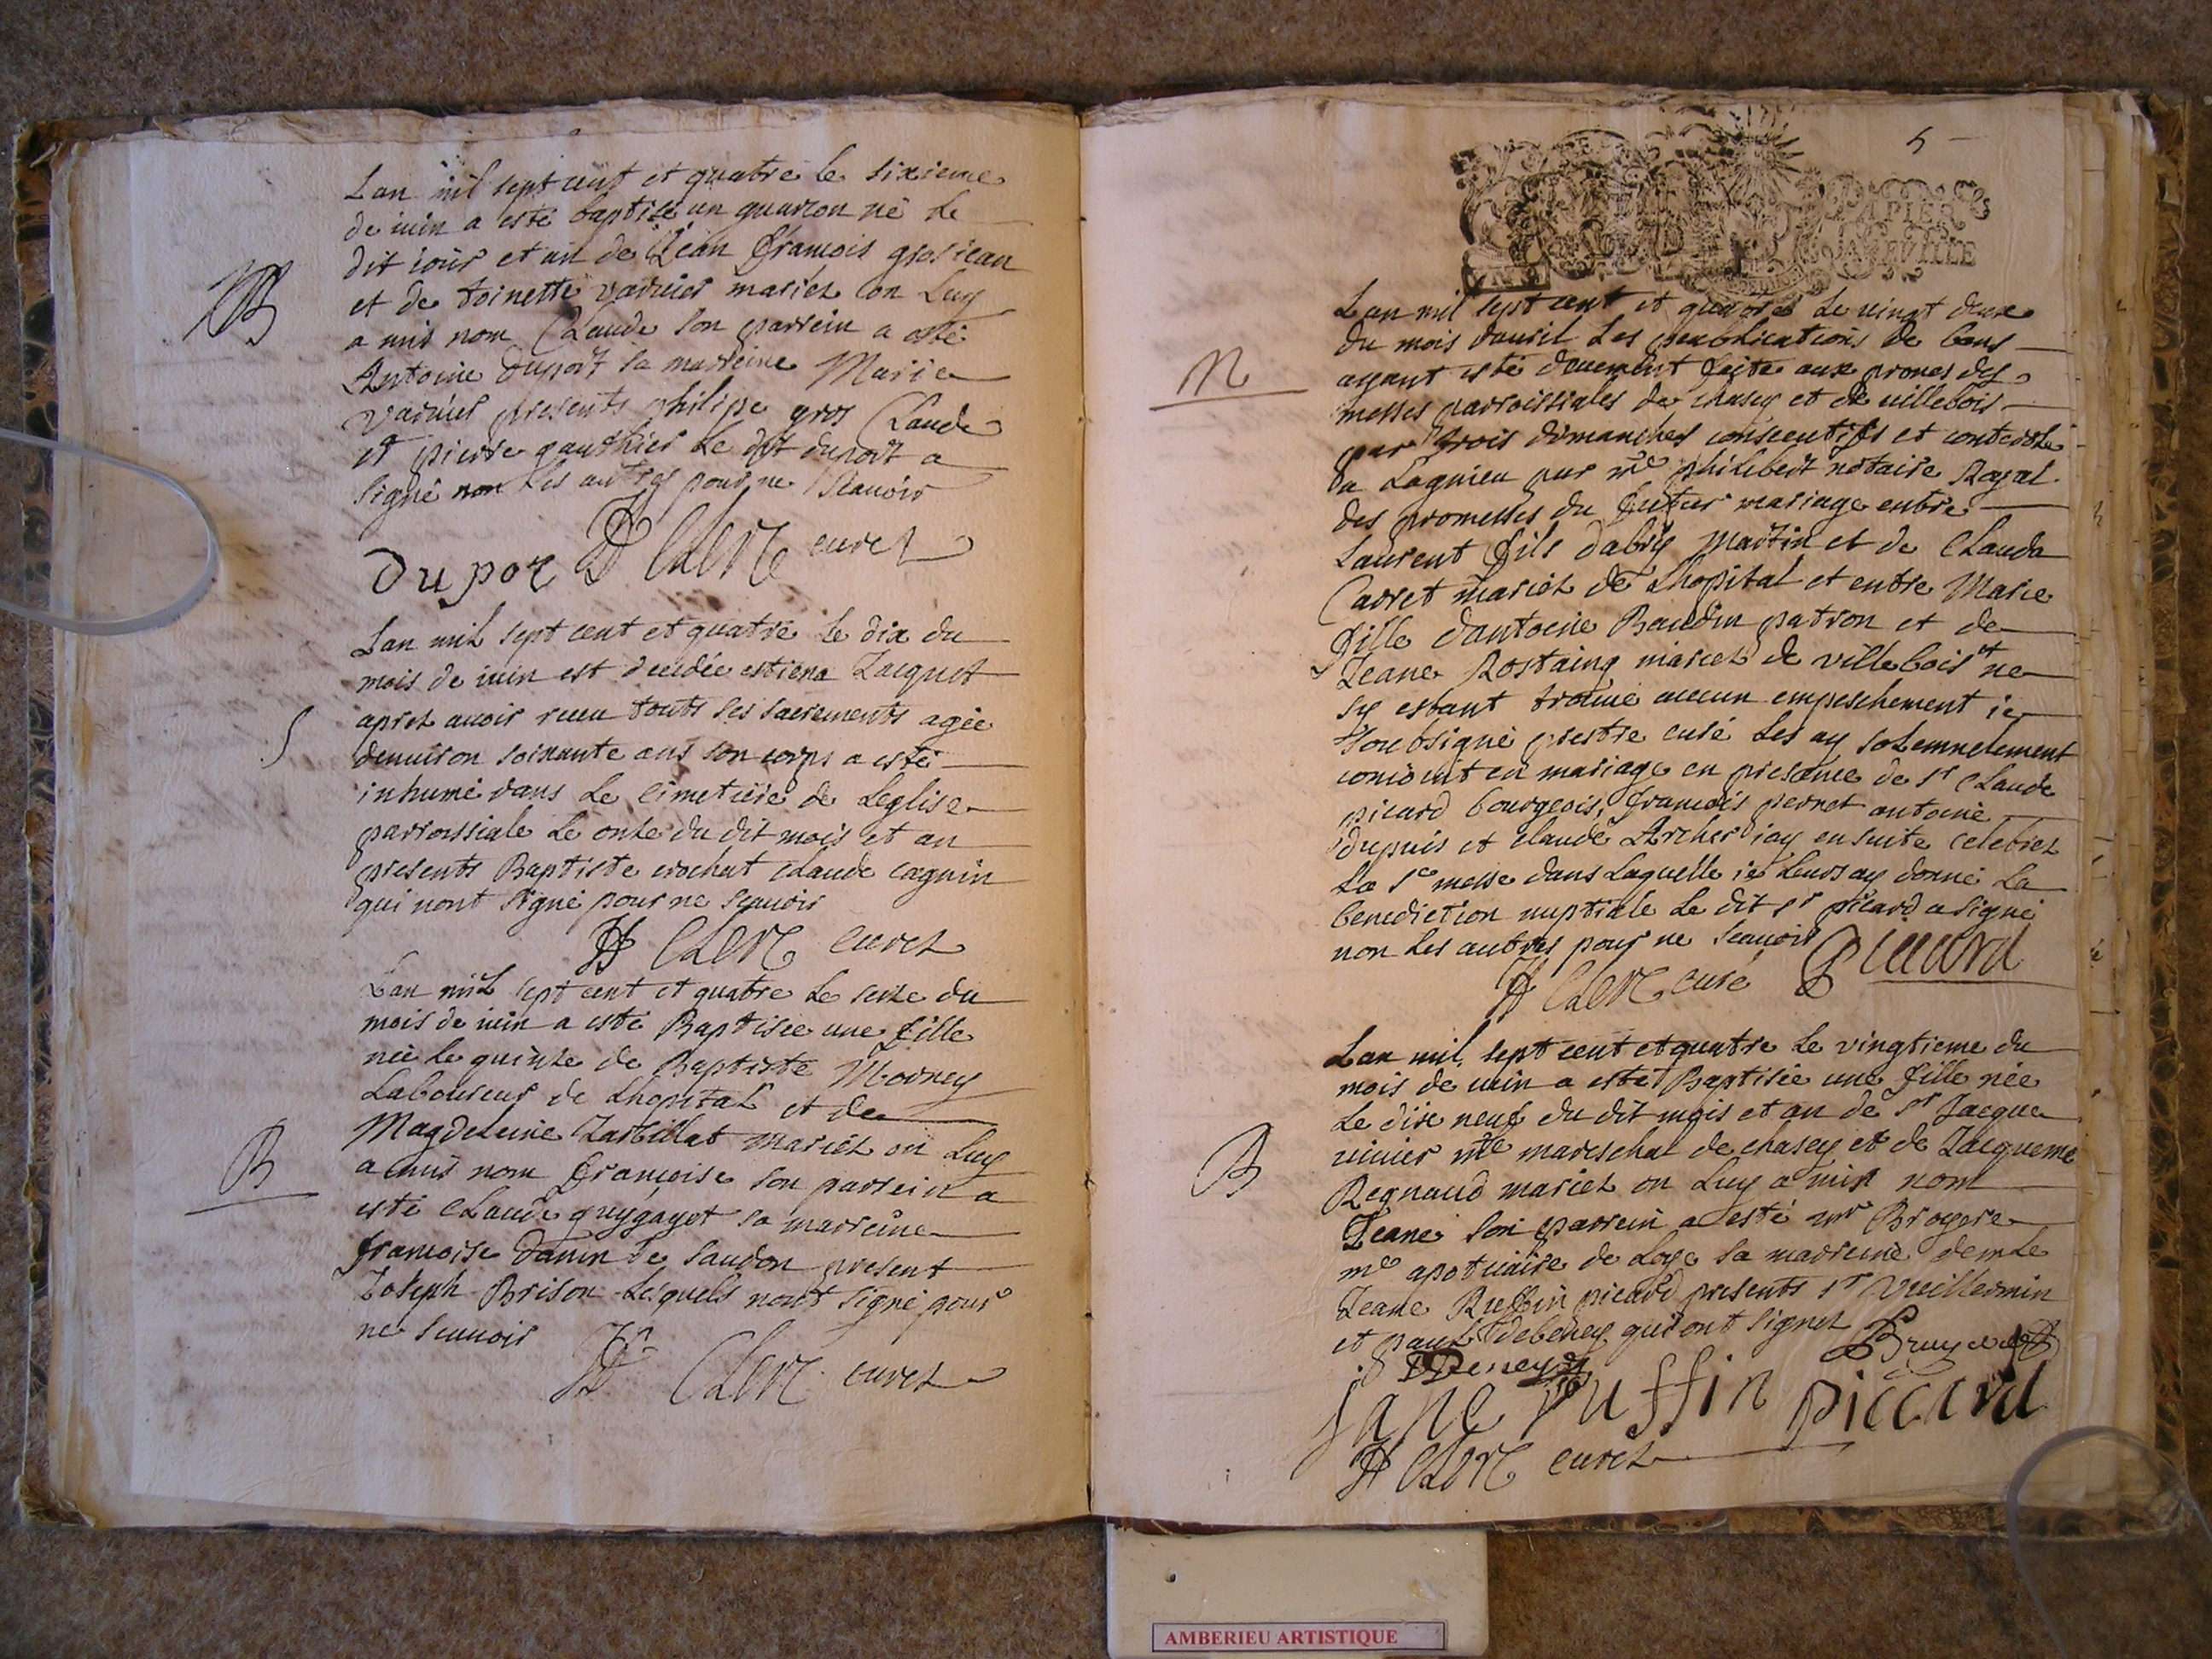 Lan mil sept cent et quatre le sixieme
de iuin a esté baptisé un guarson né le
dit iour et an de Jean francois grosiean
et de toinette varnier mariez on Luy
a mis nom Claude son parrein a esté
Antoine duport sa marreine Marie
varnier presents philipe gros Claude
et pierre gauthier le dit duport a
signé non les autres pour ne scauoir
B
Dupor Clerc curez
Lan mil sept cent et quatre le dix du
mois de iuin est decedée estiena Jacquet
aprez auoir receu touts ses sacrements agée
denuiron soixante ans son corps a esté
inhumé dans Le cimetiere de Leglise
parroissiale Le onze du dit mois et an
presents Baptiste crochat Claude cagnin
qui nont signé pour ne scauoir
S
Clerc curez
Lan mil sept cent et quatre Le seize du
mois de iuin a esté Baptisée une fille
née le quinze de Baptiste Morney
Laboureur de Lhopital et de
Magdeleine mariez on Luy
a mis nom françoise son parrein a
esté Claude guygayot sa marreine
francoise de saudon present
Joseph Brison Lesquels nont signé pour
ne scauoir
B
Clerc curez
5
PAPIER
Lan mil sept cent et quatre Le vingt deux
du mois dauril Les publications de bans
ayant esté deuement feite aux prones des
messes parroissiales de chasey et de villebois
par trois dimanches consecutifs et controlé
a Lagnieu par me philibert notaire Royal
des promesses du futur mariage entre
Laurent fils dabry Martin et de Clauda
Carret mariez de Lhopital et entre Marie
fille dantoine Baudin patron et de
Jeane Rostaing mariez de villebois et ne
sy estant trouué aucun empeschement ie
soubsigné prestre curé Les ay solemnelement
conioint en mariage en presance de sr Claude
picard bourgeois, francois pernet antoine
dupuis et claude Archer iay ensuite celebrez
La ste messe dans Laquelle ie Leurs ay donné La
benediction nuptiale Le dit sr picard a signé
non Les autres pour ne scauoir piccard
M
Clerc curé
Lan mil sept cent et quatre Le vingtieme du
mois de iuin a esté Baptisée une fille née
Le dixe neuf du dit mois et an de sr Jacque
mareschal de chasey et de Jacqueme
Regnaud mariez on Luy a mis nom
Jeane son parrein a esté mr Brogere
me apoticaire de Loye sa marreine demle
Jeane Ruffin picard presents sr Vuillermin
et paul debeney qui ont signez
B
Debeney
Jane Ruffin piccard
Clerc curez
AMBERIEU ARTISTIQUE